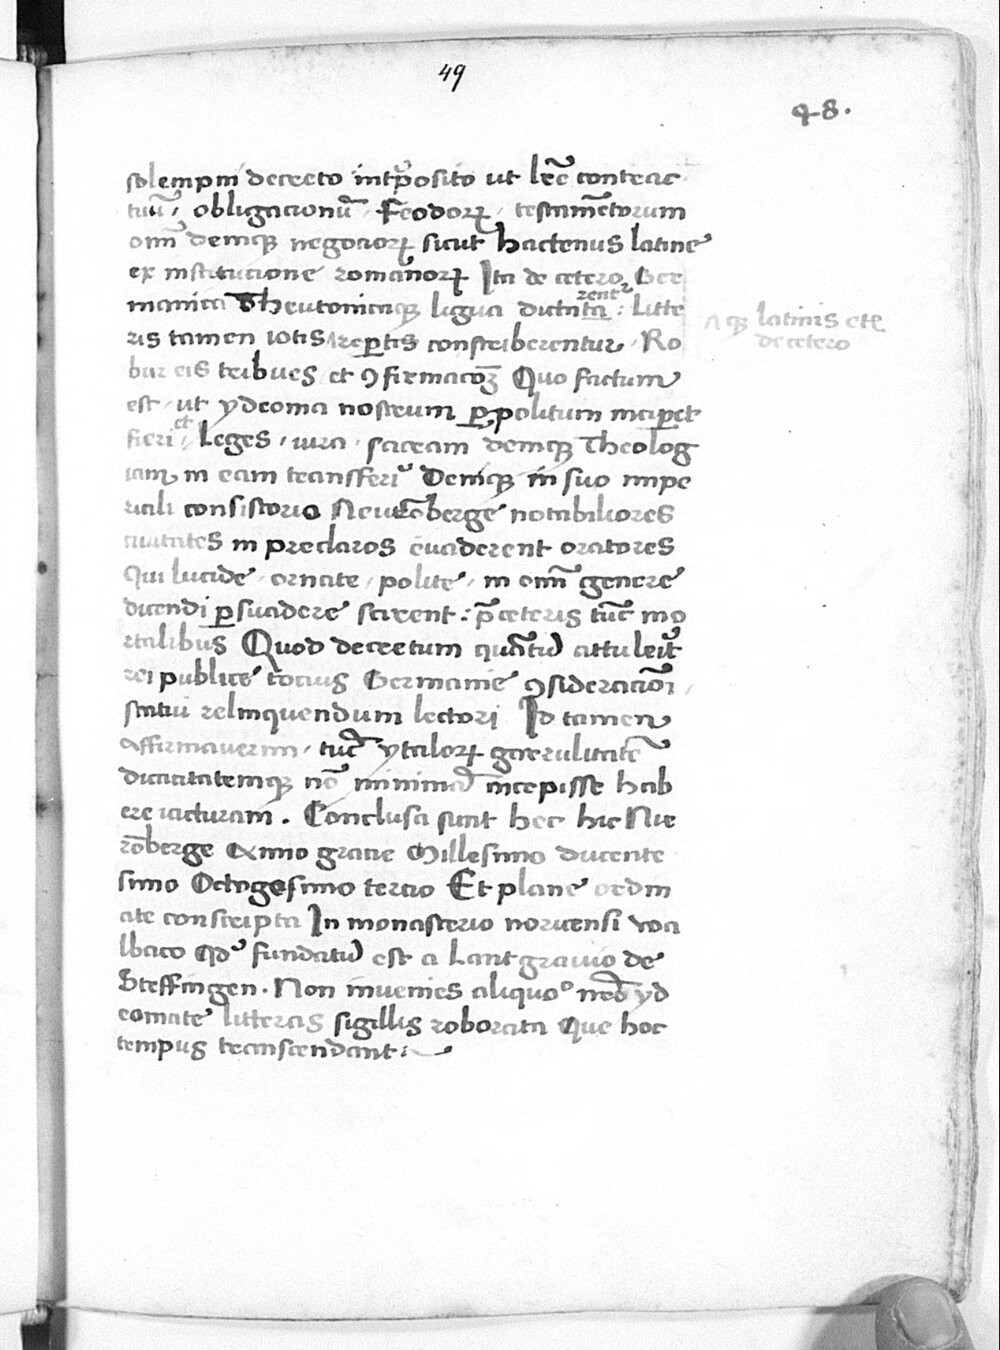 49
48.
solempni decreto intp̄osito ut lr̄e contrac
tuū, obligacionū, Feodoꝝ, testamētorum
om̄i demꝙ negocioꝝ sicut hactenus latine
ex institucione romanoꝝ Ita de cetero Ger
manica Theutonicaꝙ ligua dictata rent : Litte
Aꝙ latinis etc̄
de cetero
ris tamen iotis reꝑtis conscriberentur, Ro
bur eis tribues et ꝯfirmacōꝫ Quo factum
est, ut ydeoma nostrum ꝑpolitum inciꝑet
fieri, et Leges, iura, sacram demꝙ Theolog
iam in eam transferr̄ Demꝙ in suo impe
riali consistorio Neurēberge notabiliores
ciuitates in preclaros euaderent oratores
Qui lucide, ornate, polite, in om̄i genere
dicendi ꝑsuadere scirent : p̄ ceteris tūc mo
rtalibus Quod decretum quātū attulerit
rei publice tocius Germanie ꝯsideracōi,
statui relinquendum lectori Id tamen
affirmauerim, tūc ytaloꝝ garrulitatē
dicacitatemꝙ nō minimā incepisse hab
ere iacturam. Conclusa sunt hec hic Nue
rōberge Anno gracie Millesimo ducente
simo Octogesimo tercio Et plane ordin
ate conscripta In monasterio noricensi wa
lbaco qd fundatū est a Lantgrauio de
Steffingen. Non inuenies aliquo nrā yd
eomate litteras sigillis roborata Que hoc
tempus transcendant :